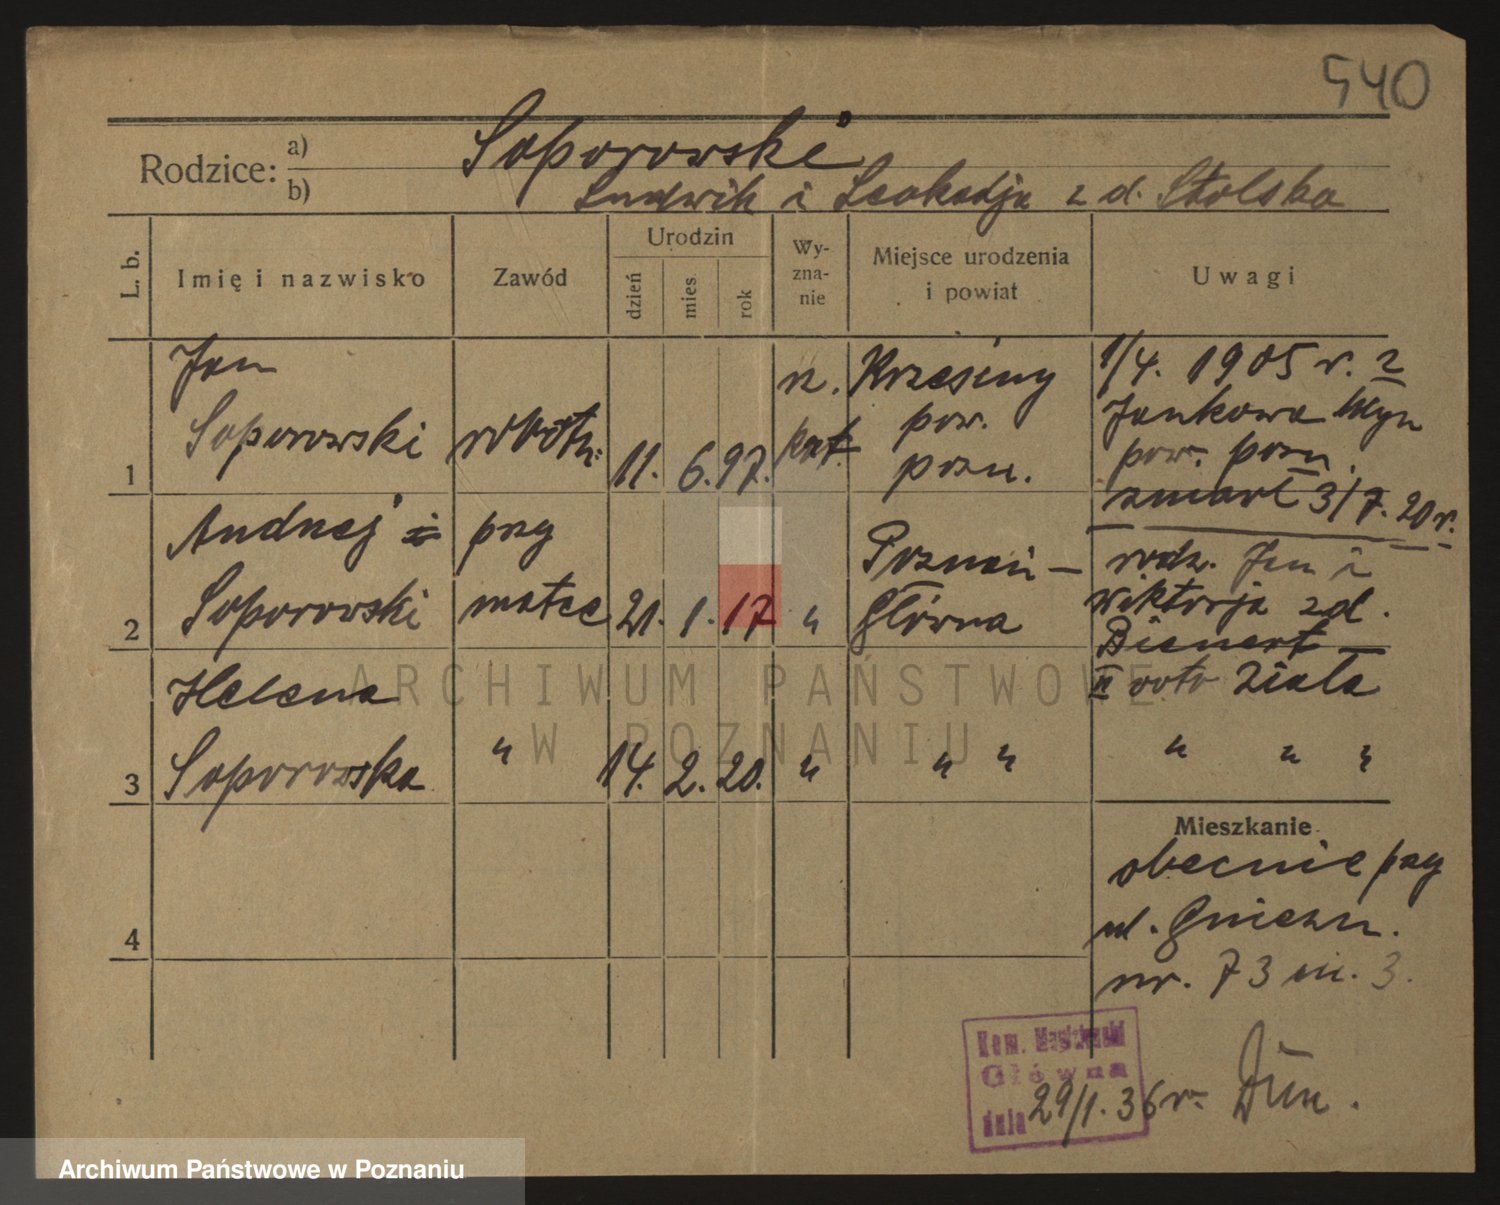 540
Rodzice: a) Soporowski
b) Ludwik i Leokadja z d. Stolska
L. b.
Imię i nazwisko
Zawód
Urodzin
dzień
mies
rok
Wy-
zna-
nie
Miejsce urodzenia
i powiat
Uwagi
1
Jan
Soporowski
robotn.
11. 6. 97.
rz.
kat.
Krzesiny
pow.
pozn.
1/4. 1905 r. z
Jankowa Młyn
pow. pozn.
zmarł 3/7. 20 r.
2
Andrzej
Soporowski
przy
matce
21. 1. 17
"
Poznań —
Główna
rodz. Jan i
Wiktorja z d.
Bienert —
II voto Ziała
3
Helena
Soporowska
"
14. 2. 20.
"
" "
" " "
4
Mieszkanie
obecnie przy
ul. Gniezn.
nr. 73 m. 3.
Główna
dnia 29/1. 36 r.
ARCHIWUM PAŃSTWOWE
W POZNANIU
Archiwum Państwowe w Poznaniu